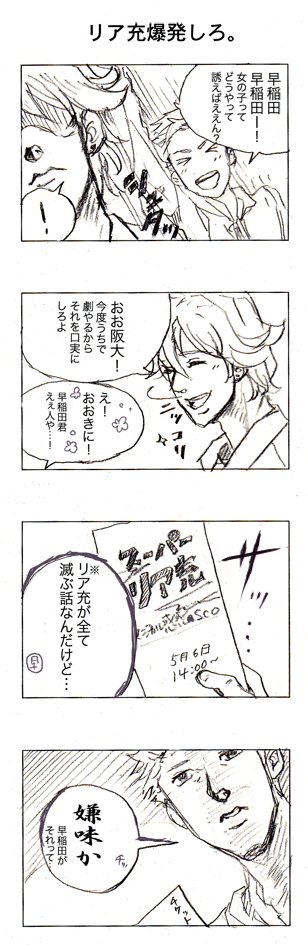 リア充爆発しろ。
早稲田
早稲田ー！
女の子って
どうやって
誘えばええん？
！
おお阪大！
今度うちで
劇やるから
それを口実に
しろよ
え！
おおきに！
早稲田君
ええ人や…！
ニッコリ
サッ…
スーパー
リア充
5月6日
14:00～
※
リア充が全て
滅ぶ話なんだけど…
早
嫌味か
早稲田が
それって…
チッ
チケット